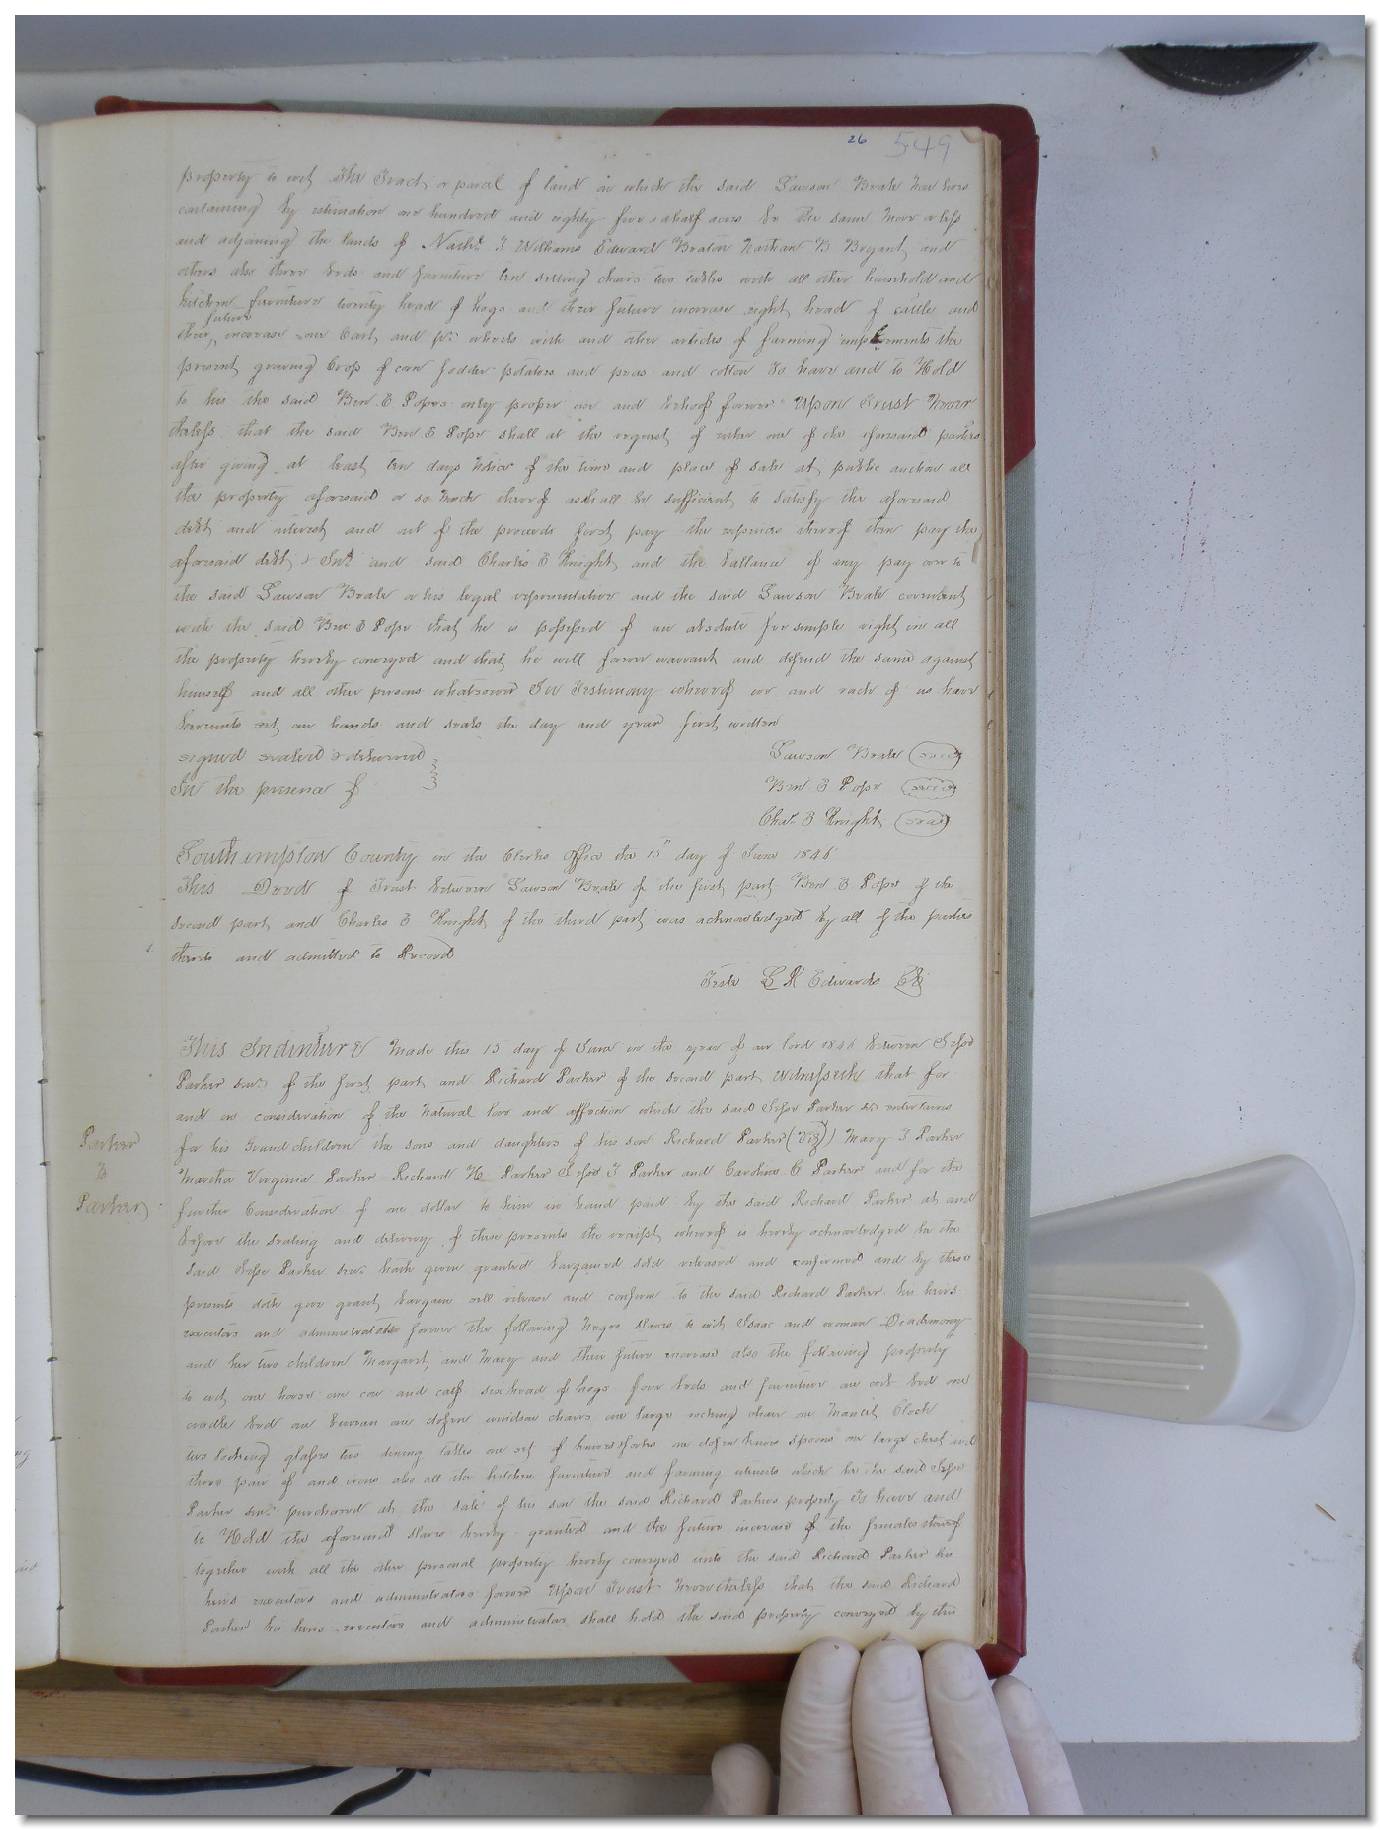 26 549
property to wit The Tract or parcel of land on which the said Lawson Beale now lives
containing by estimation one hundred and eighty four & a half acres be the same more or less
and adjoining the lands of Nathl T Williams Edward Beaton Nathan B Bryant and
others also three beds and furniture ten setting chairs two tables with all other household and
kitchen furniture twenty head of hogs and their future increase eight head of cattle and
their future increase one Cart and pr wheels with and other articles of farming implements the
present growing Crop of corn fodder potatoes and peas and cotton To have and to Hold
to his the said Ben E Popes only proper use and behoof forever Upon Trust Never
theless that the said Ben E Pope shall at the request of either one of the aforesaid parties
after giving at least ten days Notice of the time and place of sale at public auction all
the property aforesaid or so much thereof as shall be sufficient to satisfy the aforesaid
debt and interest and out of the proceeds first pay the expenses thereof then pay the
aforesaid debt & Int and said Charles E Knight and the ballance if any pay over to
the said Lawson Beale or his legal representative and the said Lawson Beale covenant
with the said Ben E Pope that he is possessed of an absolute fee simple right in all
the property hereby conveyed and that he will forever warrant and defend the same against
himself and all other persons whatsoever In Testimony whereof we and each of us have
hereunto set our hands and seals the day and year first written
signed sealed & delivered Lawson Beale (seal)
In the presence of Ben E Pope (seal)
Chas E Knight (seal)
Southampton County in the Clerks office the 15th day of June 1846
This Deed of Trust between Lawson Beale of the first part Ben E Pope of the
second part and Charles E Knight of the third part was acknowledged by all of the parties
thereto and admitted to Record
Teste L R Edwards CC
This Indenture Made this 15 day of June in the year of our lord 1846 between Jesse
Parker senr of the first part and Richard Parker of the second part Witnesseth that for
and in consideration of the natural love and affection which the said Jesse Parker sr entertains
Parker
to
Parker
for his Grandchildren the sons and daughters of his son Richard Parker (Viz) Mary T Parker
Martha Virginia Parker Richard H Parker Jesse T Parker and Caroline C Parker and for the
further Consideration of one dollar to him in hand paid by the said Richard Parker at and
before the sealing and delivery of these presents the receipt whereof is hereby acknowledged he the
said Jesse Parker senr hath given granted bargained sold released and confirmed and by these
presents doth give grant bargain sell release and confirm to the said Richard Parker his heirs
executors and administrators forever the following Negro slaves to wit Isaac and woman
and her two children Margaret and Mary and their future increase also the following property
to wit one horse one cow and calf six head of hogs four beds and furniture one cot bed one
cradle bed one bureau one dozen windsor chairs one large rocking chair one Mantel Clock
two looking glasses two dining tables one set of knives & forks one dozen spoons one large chest and
three pair of and irons also all the kitchen furniture and farming utensils which he the said Jesse
Parker senr purchased at the sale of his son the said Richard Parkers property To have and
to Hold the aforesaid slaves hereby granted and the future increase of the females thereof
together with all the other personal property hereby conveyed unto the said Richard Parker his
heirs executors and administrators forever Upon Trust Nevertheless that the said Richard
Parker his heirs executors and administrators shall hold the said property conveyed by this